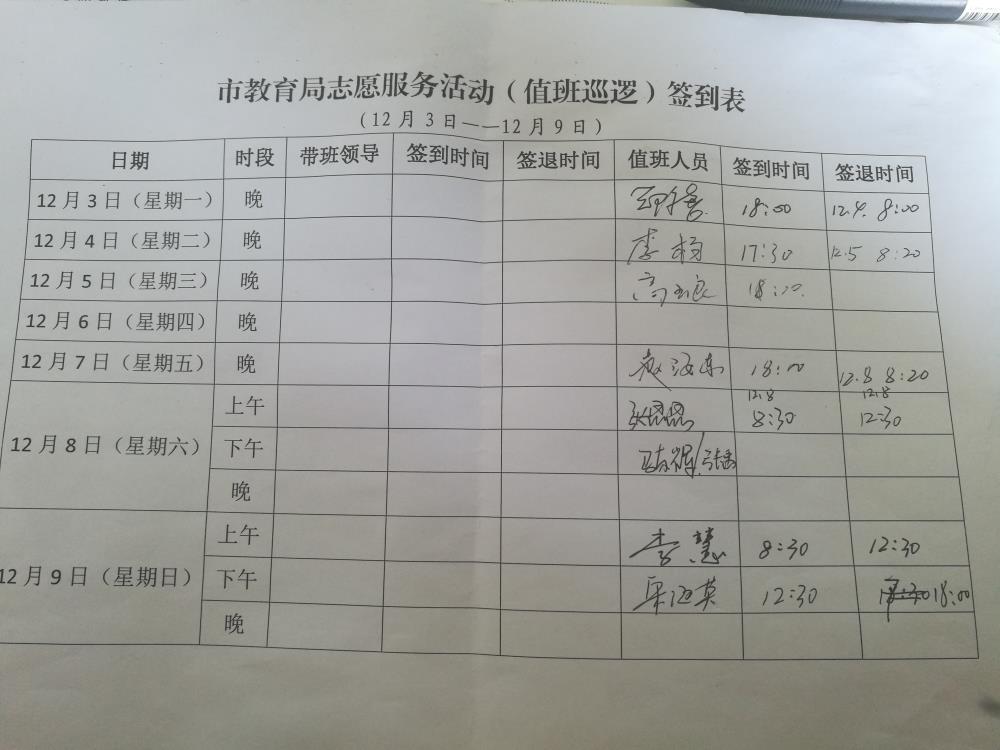 市教育局志愿服务活动（值班巡逻）签到表
（12月3日——12月9日）
日期 时段 带班领导 签到时间 签退时间 值班人员 签到时间 签退时间
12月3日（星期一） 晚 18:00 12.4. 8:00
12月4日（星期二） 晚 李杨 17:30 12.5 8:20
12月5日（星期三） 晚 18:00
12月6日（星期四） 晚
12月7日（星期五） 晚 赵海东 18:00 12.8 8:20
12月8日（星期六） 上午 12.8 8:30 12.8 12:30
下午
晚
12月9日（星期日） 上午 李慧 8:30 12:30
下午 12:30 18:00
晚